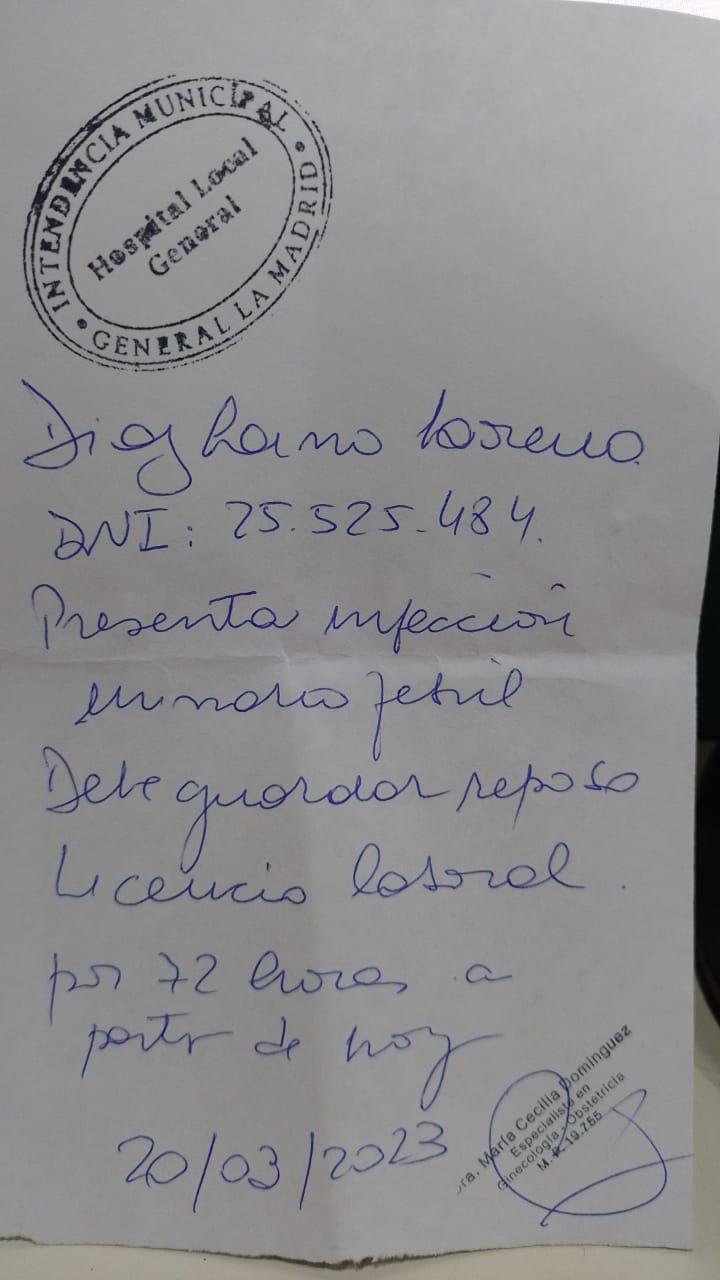 INTENDENCIA MUNICIPAL
Hospital Local
General
GENERAL LA MADRID
Lorena
DNI: 25.525.484.
Presenta infección
urinaria febril
Debe guardar reposo
Licencia laboral.
por 72 horas a
partir de hoy
20/03/2023
Dra. María Cecilia Domínguez
Especialista en
Ginecología - Obstetricia
M.P. 19.755